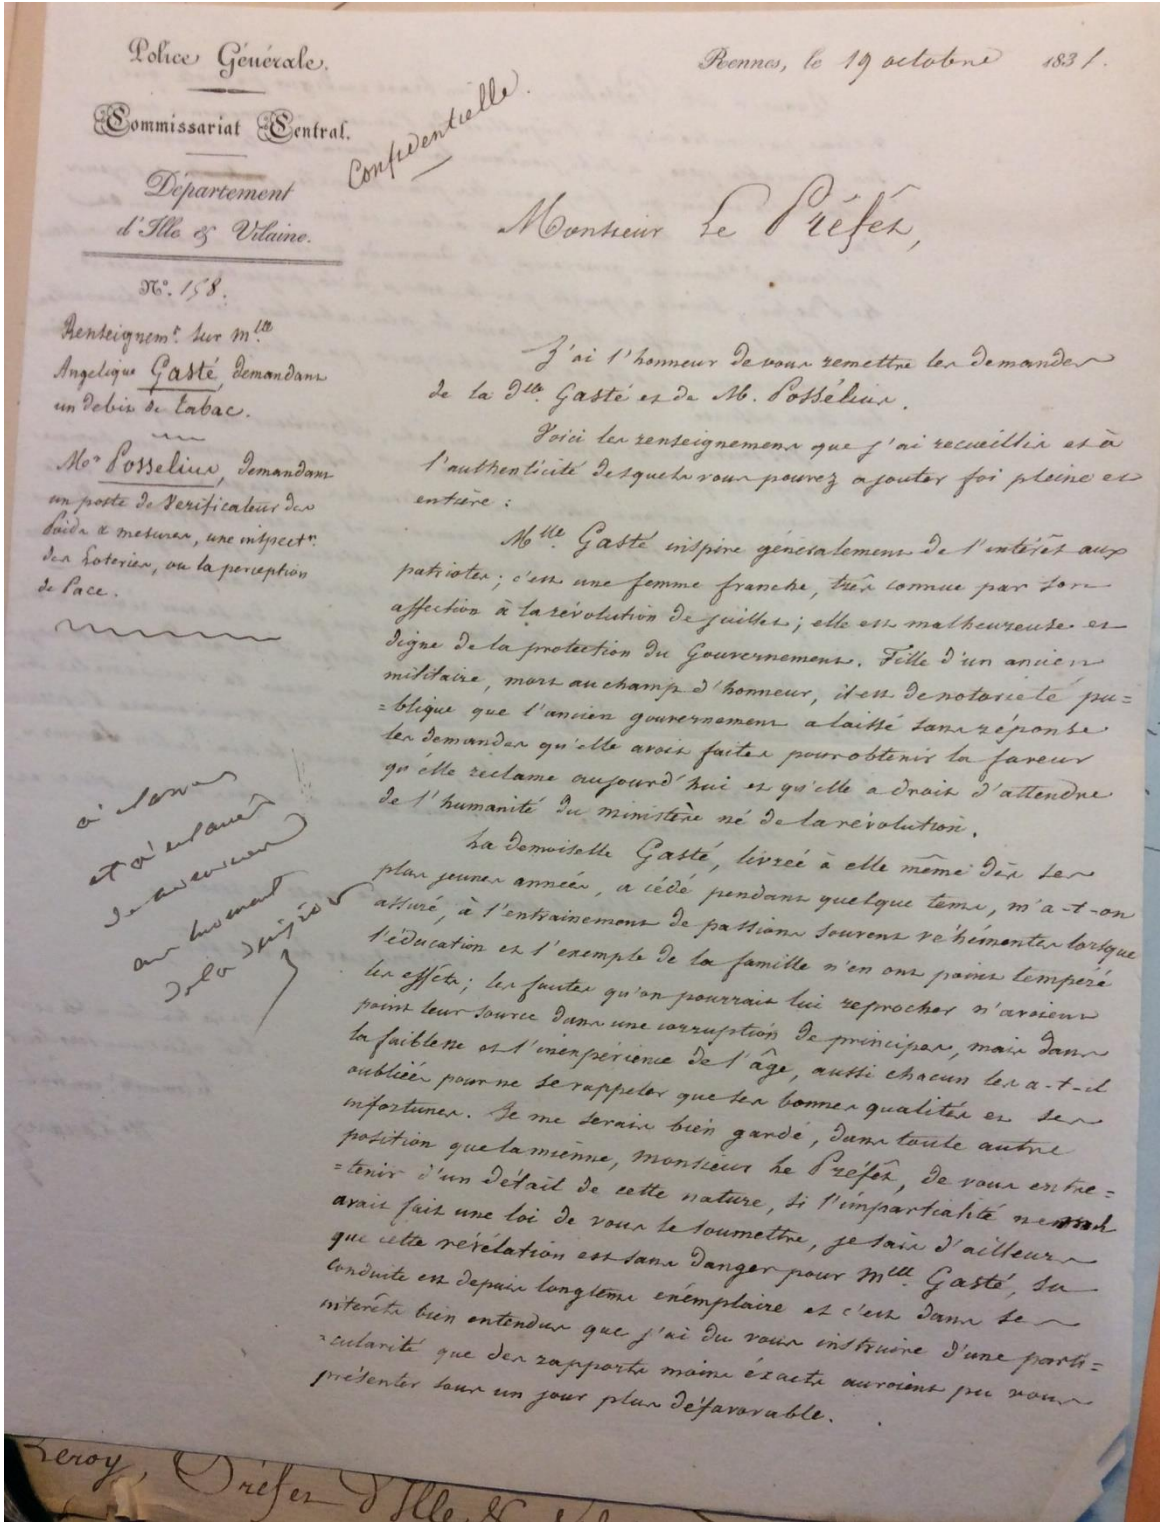 Police Générale.
Commissariat Central.
Département
d'Ille & Vilaine.
N.o 158.
Rennes, le 19 octobre 1831.
Confidentielle.
Renseignem.t sur m.lle
Angelique Gasté, demandant
un debit de tabac.
M.r Posselius, demandant
un poste de Vérificateur des
Poids & mesures, une inspect.n
des Loteries, ou la perception
de Pacé.
à classer
et à
de
au moment
de la
Monsieur Le Préfet,
J'ai l'honneur de vous remettre les demandes
de la d.lle Gasté et de M. Possélius.
Voici les renseignemens que j'ai recueillis et à
l'authenticité desquels vous pouvez ajouter foi pleine et
entière :
M.lle Gasté inspire généralement de l'intérêt aux
patriotes ; c'est une femme franche, très connue par son
affection à la révolution de juillet ; elle est malheureuse et
digne de la protection du Gouvernement. Fille d'un ancien
militaire, mort au champ d'honneur, il est de notoriété pu=
=blique que l'ancien gouvernement a laissé sans réponse
les demandes qu'elle avoit faites pour obtenir la faveur
qu'elle réclame aujourd'hui et qu'elle a droit d'attendre
de l'humanité du ministère né de la révolution.
La demoiselle Gasté, livrée à elle même dès ses
plus jeunes années, a cédé pendant quelque tems, m'a-t-on
assuré, à l'entrainement de passions souvent véhémentes lorsque
l'éducation et l'exemple de la famille n'en ont point tempéré
les effets ; les fautes qu'on pourrait lui reprocher n'avoient
point leur source dans une corruption de principes, mais dans
la faiblesse et l'inexpérience de l'âge, aussi chacun les a-t-il
oubliées pour ne se rappeler que ses bonnes qualités et ses
infortunes. Je me serais bien gardé, dans toute autre
position que la mienne, monsieur Le Préfet, de vous entre=
=tenir d'un détail de cette nature, si l'impartialité ne
avait fait une loi de vous le soumettre, je sais d'ailleurs
que cette révélation est sans danger pour m.lle Gasté, sa
conduite est depuis longtems exémplaire et c'est dans ses
intérêts bien entendus que j'ai du vous instruire d'une parti=
=cularité que des rapports moins éxacts auroient pu vous
présenter sous un jour plus défavorable.
Leroy, Préfet d'Ille &